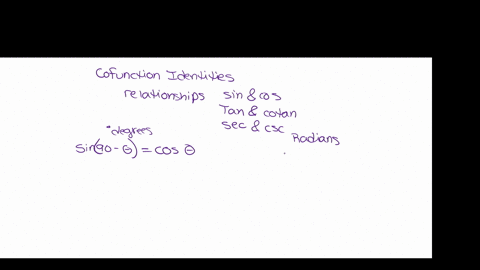 Cofunction Identities
relationships sin & cos
Tan & cotan
sec & csc
°degrees
Radians
sin(90 - θ) = cos θ